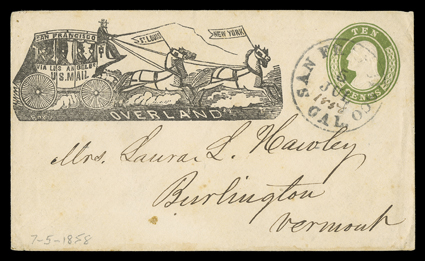 SAN FRANCISCO
ST. LOUIS
NEW YORK
VIA LOS ANGELOS
U.S. MAIL
OVERLAND
TEN
CENTS
SAN
5
CAL
Mrs. Laura L. Hawley
Burlington
Vermont
7-5-1858